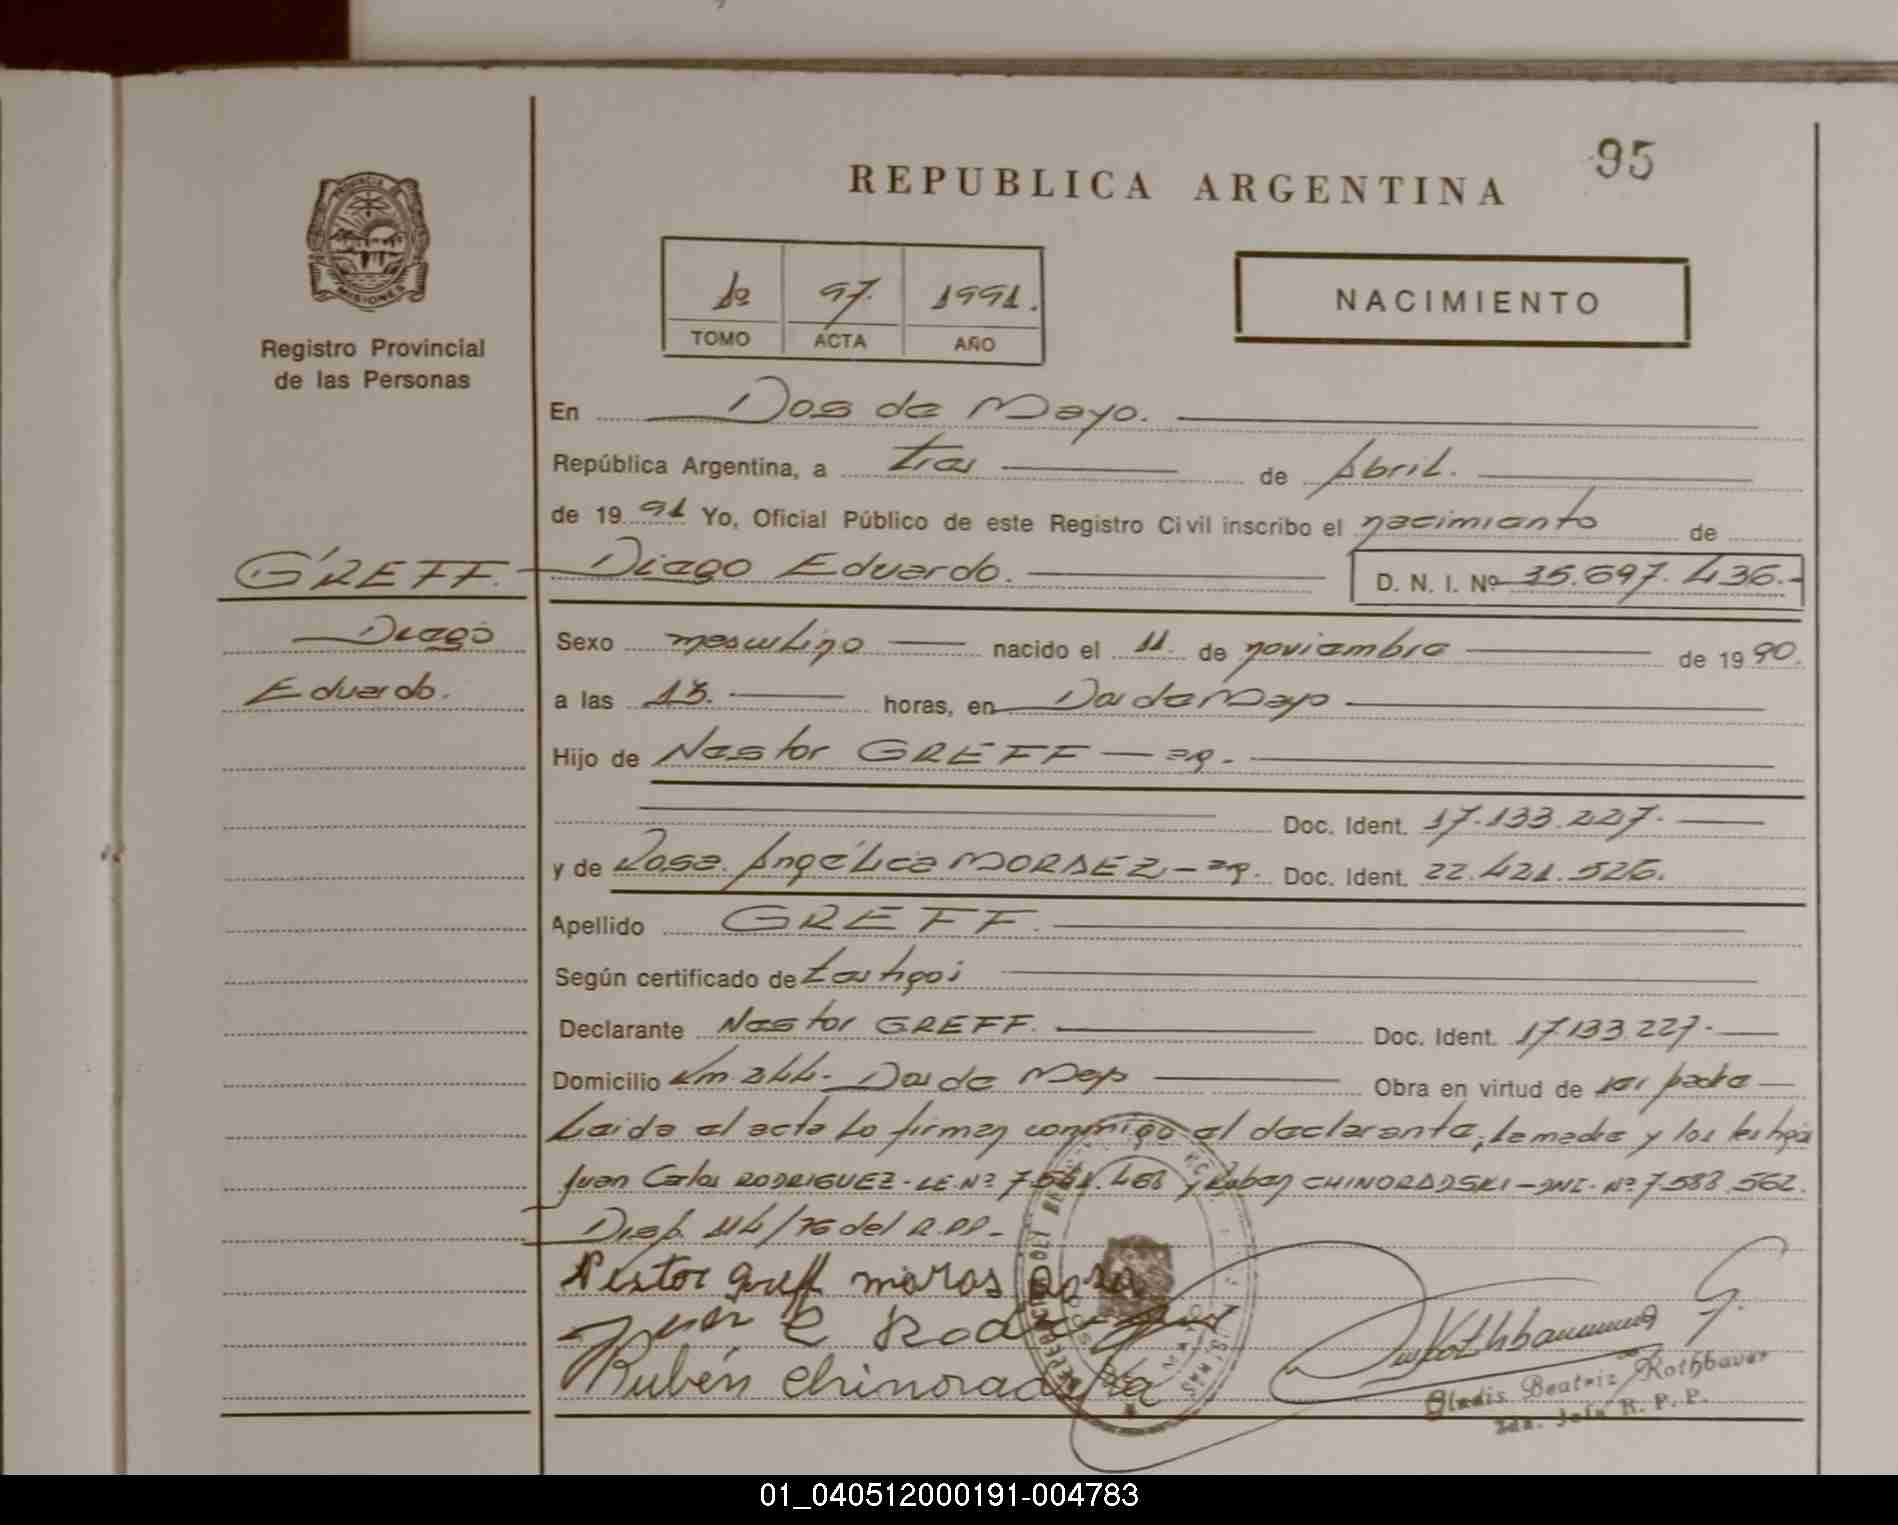 95
REPUBLICA ARGENTINA
PROVINCIA DE
MISIONES
Registro Provincial
de las Personas
1º 97. 1991.
TOMO ACTA AÑO
NACIMIENTO
En Dos de Mayo.
República Argentina, a tres de Abril.
de 19 91 Yo, Oficial Público de este Registro Civil inscribo el nacimiento de
GREFF. Diego Eduardo. D. N. I. Nº 35.697.436.-
Diego
Eduardo.
Sexo masculino nacido el 11 de noviembre de 19 90.
a las 13. horas, en Dos de Mayo
Hijo de Nestor GREFF - ag.
Doc. Ident. 17.133.227.
y de Rosa Angélica MORAEZ - ag. Doc. Ident. 22.421.526.
Apellido GREFF.
Según certificado de testigos
Declarante Nestor GREFF. Doc. Ident. 17.133.227.
Domicilio Km. 244. Dos de Mayo Obra en virtud de ser padre
Leida el acta lo firman conmigo el declarante, la madre y los testigos
Juan Carlos RODRIGUEZ - LE. Nº 7. .468 y Ruben CHINORADSKI - DNI. Nº 7.588.562.
Disp. 114/76 del R.PP.-
Nestor Greff moras Rosa
Juan C Rodriguez
Rubén Chinoradska
Gladis Beatriz Rothbauer
R. P. P.
01_040512000191-004783